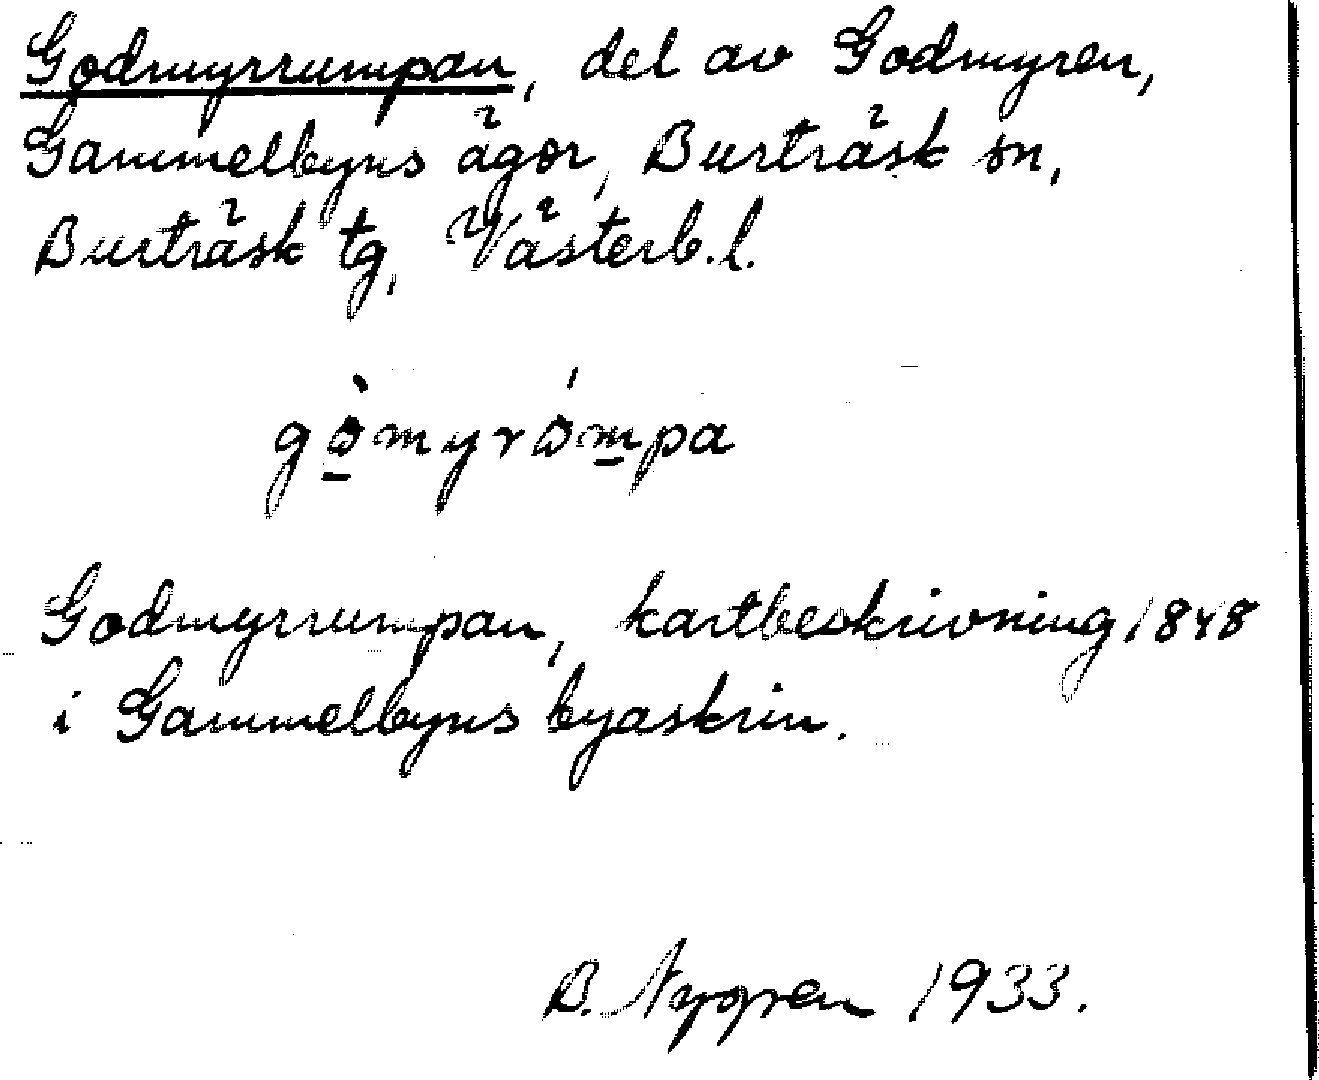 Godmyrrumpan, del av Godmyren,
Gammelbyns ägor, Burträsk sn,
Burträsk tg, Västerb. l.
gòmyrómpa
Godmyrrumpan, kartbeskrivning 1848
i Gammelbyns byaskrin.
B. Nygren 1933.